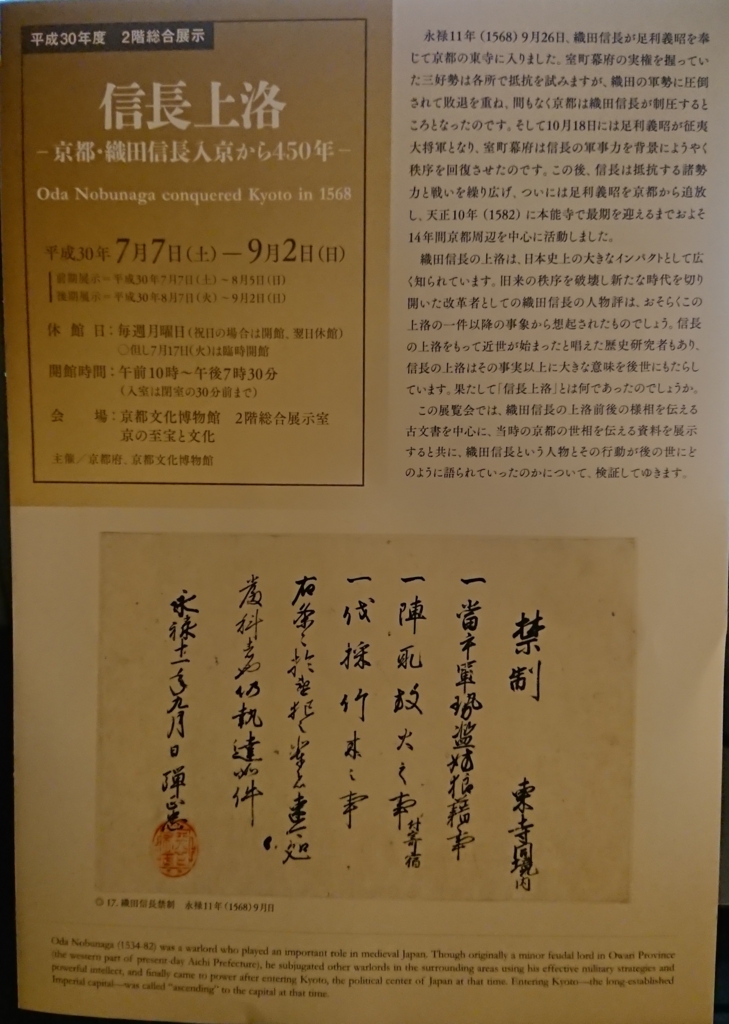 平成30年度　2階総合展示
信長上洛
－京都・織田信長入京から450年－
Oda Nobunaga conquered Kyoto in 1568
平成30年 7月7日(土) ― 9月2日(日)
前期展示－平成30年7月7日(土)～8月5日(日)
後期展示－平成30年8月7日(火)～9月2日(日)
休館日：毎週月曜日(祝日の場合は開館、翌日休館)
○但し7月17日(火)は臨時開館
開館時間：午前10時～午後7時30分
(入室は閉室の30分前まで)
会　場：京都文化博物館　2階総合展示室
京の至宝と文化
主催／京都府、京都文化博物館
永禄11年（1568）9月26日、織田信長が足利義昭を奉
じて京都の東寺に入りました。室町幕府の実権を握ってい
た三好勢は各所で抵抗を試みますが、織田の軍勢に圧倒
されて敗退を重ね、間もなく京都は織田信長が制圧すると
ころとなったのです。そして10月18日には足利義昭が征夷
大将軍となり、室町幕府は信長の軍事力を背景にようやく
秩序を回復させたのです。この後、信長は抵抗する諸勢
力と戦いを繰り広げ、ついには足利義昭を京都から追放
し、天正10年（1582）に本能寺で最期を迎えるまでおよそ
14年間京都周辺を中心に活動しました。
織田信長の上洛は、日本史上の大きなインパクトとして広
く知られています。旧来の秩序を破壊し新たな時代を切り
開いた改革者としての織田信長の人物評は、おそらくこの
上洛の一件以降の事象から想起されたものでしょう。信長
の上洛をもって近世が始まったと唱えた歴史研究者もあり、
信長の上洛はその事実以上に大きな意味を後世にもたらし
ています。果たして「信長上洛」とは何であったのでしょうか。
この展覧会では、織田信長の上洛前後の様相を伝える
古文書を中心に、当時の京都の世相を伝える資料を展示
すると共に、織田信長という人物とその行動が後の世にど
のように語られていったのかについて、検証してゆきます。
禁制　東寺同境内
一當手軍勢濫妨狼藉事
一陣取放火之事付寄宿
一伐採竹木之事
右条々於違犯之輩者速可処
厳科者也仍執達如件
永禄十一年九月日　弾正忠
◎17. 織田信長禁制　永禄11年(1568)9月日
Oda Nobunaga (1534-82) was a warlord who played an important role in medieval Japan. Though originally a minor feudal lord in Owari Province
(the western part of present-day Aichi Prefecture), he subjugated other warlords in the surrounding areas using his effective military strategies and
powerful intellect, and finally came to power after entering Kyoto, the political center of Japan at that time. Entering Kyoto—the long-established
Imperial capital—was called “ascending” to the capital at that time.